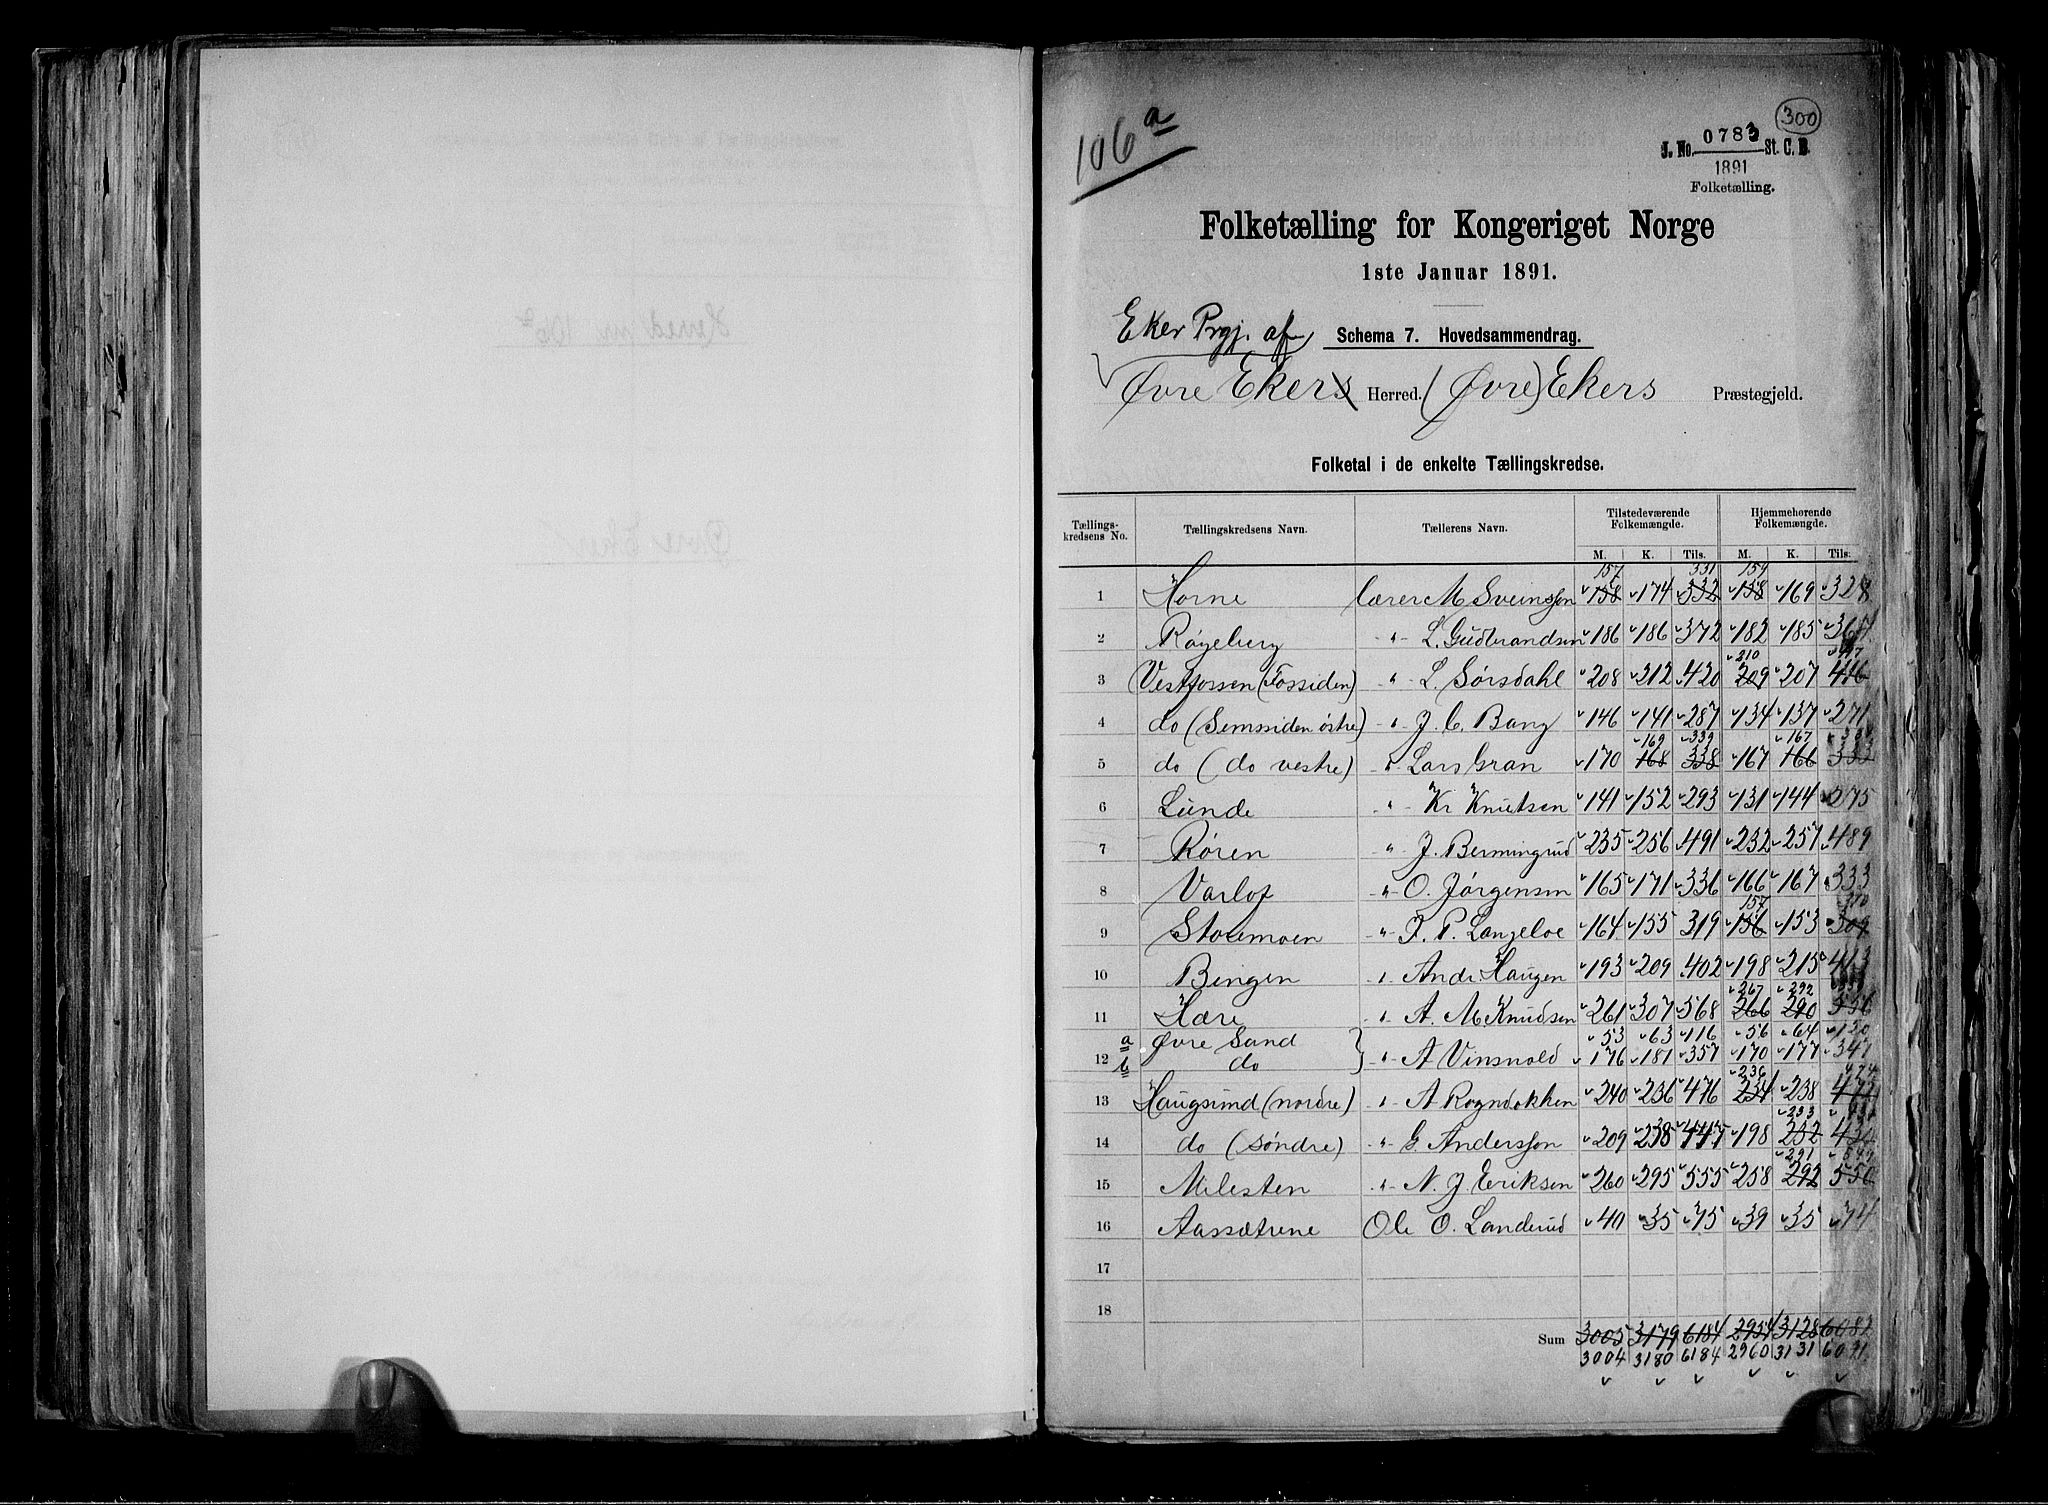 300
106 a
J. No. 0783 St. C. B.
1891
Folketælling.
Folketælling for Kongeriget Norge
1ste Januar 1891.
Eker Prgj. af
Schema 7. Hovedsammendrag.
Øvre Ekers Herred. (Øvre) Ekers Præstegjeld.
Folketal i de enkelte Tællingskredse.
Tællingskredsens No. Tællingskredsens Navn. Tællerens Navn. Tilstedeværende Folkemængde. Hjemmehørende Folkemængde.
M. K. Tils. M. K. Tils.
157 331 159
1 Horne Lærer M Sveinssen 158 174 332 158 169 328
2 Røgeberg -"- L. Gudbrandsen 186 186 372 182 185 367
210 417
3 Vestfossen (Fossiden) " L. Sørsdahl 208 212 420 209 207 416
4 do (Semssiden østre) -"- J. C. Bang 146 141 287 134 137 271
169 339 167 334
5 do (do vestre) " Lars Gran 170 168 338 167 166 333
6 Lunde " Kr Knutsen 141 152 293 131 144 275
7 Røren " J. Bermingrud 235 256 491 232 257 489
8 Varlo " O. Jørgensen 165 171 336 166 167 333
157 310
9 Stormoen -"- J. P. Langeloe 164 155 319 156 153 309
10 Bingen -"- Andr Haugen 193 209 402 198 215 413
267 292 559
11 Hære " A. M. Knudsen 261 307 568 266 290 556
a Øvre Sand 53 63 116 56 64 120
12 b do } " A Vinsvold 176 181 357 170 177 347
236 474
13 Haugsund (nordre) " A Rogndokken 240 236 476 234 238 472
233 431
14 do (søndre) " G. Anderssen 209 238 447 198 232 430
291 549
15 Milesten -"- N. J. Eriksen 260 295 555 258 292 550
16 Aassætrene Ole O. Landerud 40 35 75 39 35 74
17
18
Sum 3005 3179 6184 2954 3128 6082
3004 3180 6184 2960 3131 6091